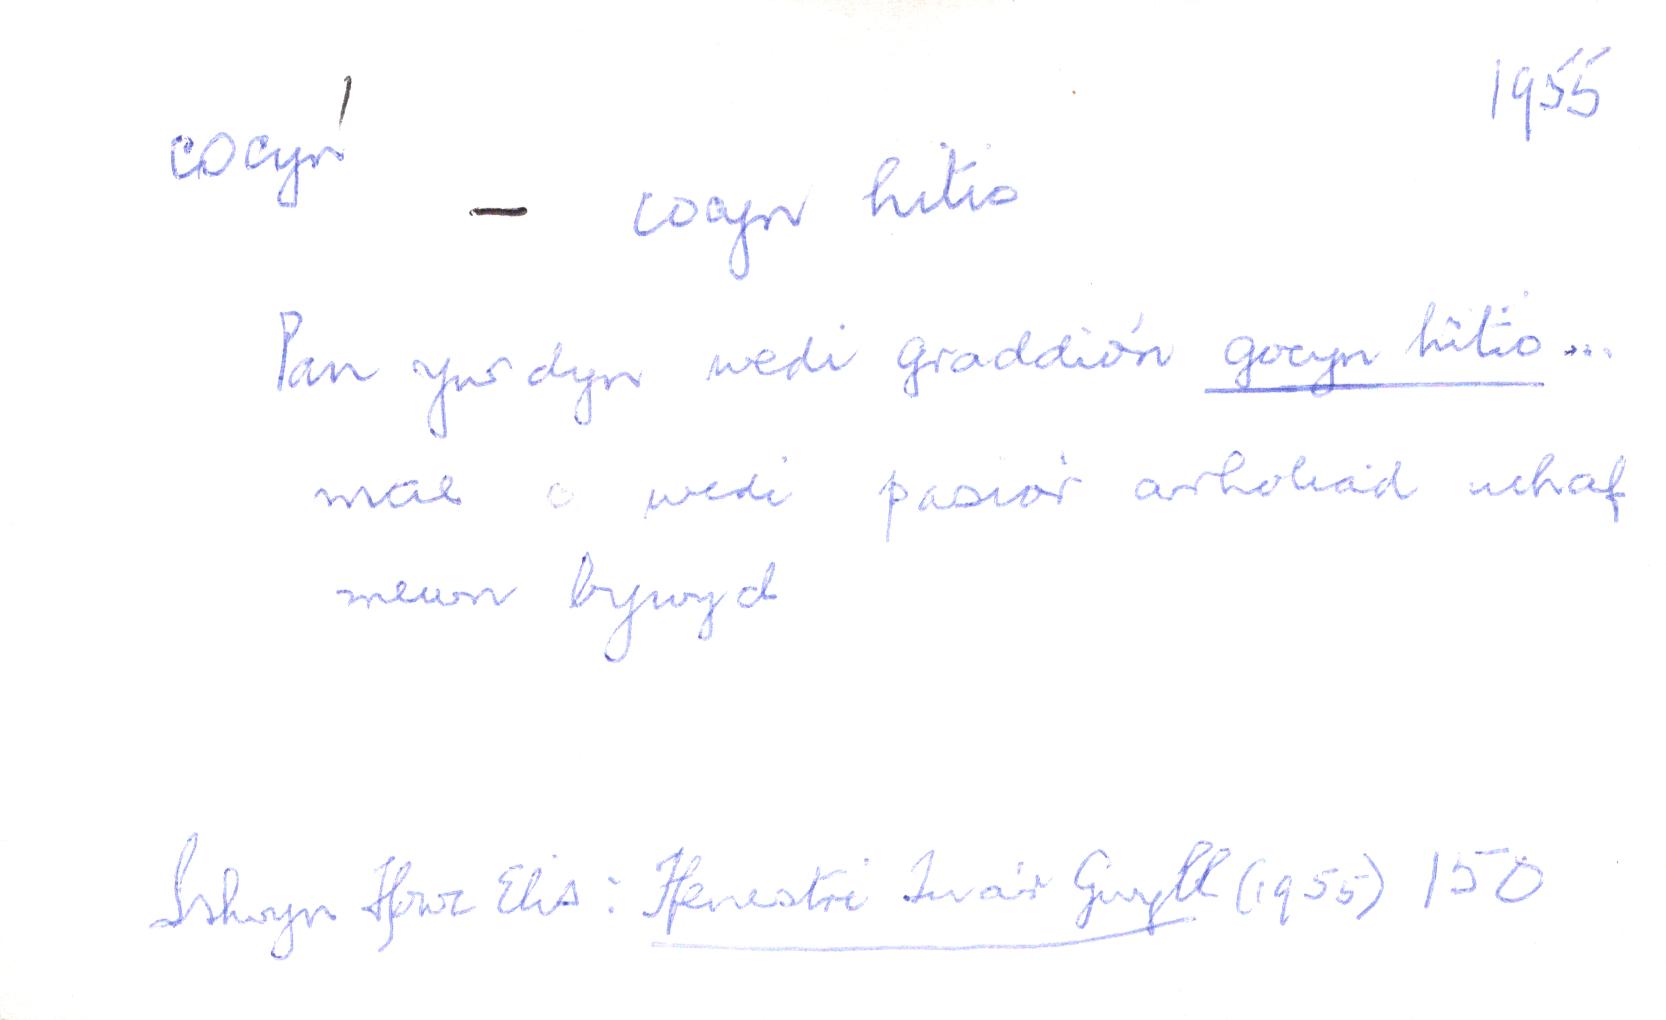 1955
cocyn¹
— cocyn hitio
Pan yw dyn wedi graddio'n gocyn hitio...
mae o wedi pasio'r arholiad uchaf
mewn bywyd
Islwyn Ffowc Elis: Ffenestri Tua'r Gwyll (1955) 150